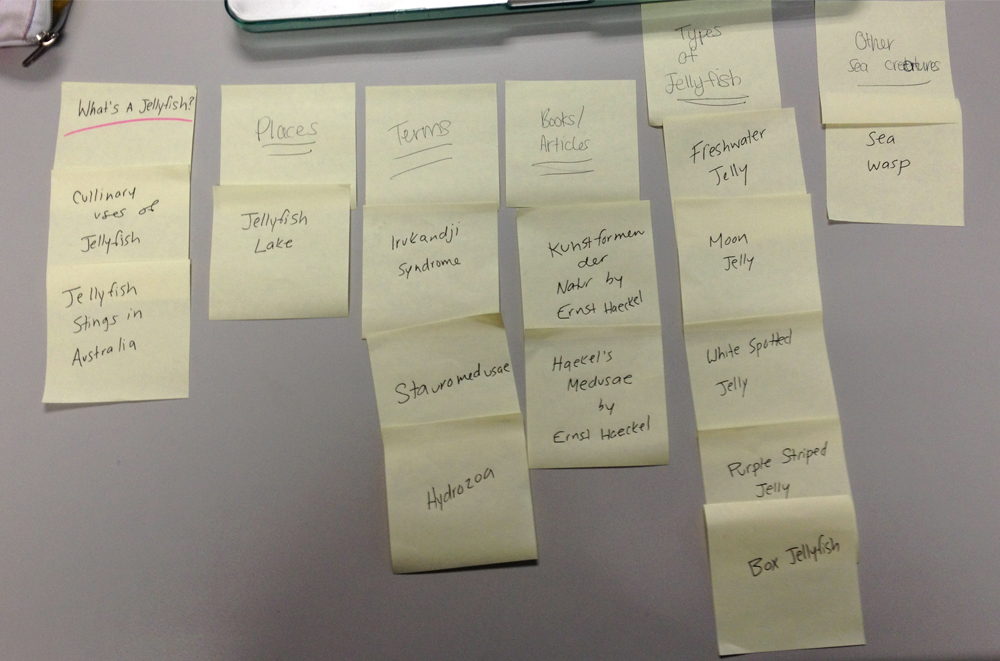 What's A Jellyfish?
Cullinary
uses of
Jellyfish
Jellyfish
Stings in
Australia
Places
Jellyfish
Lake
Terms
Irukandji
Syndrome
Stauromedusae
Hydrozoa
Books/
Articles
Kunstformen
der
Natur by
Ernst Haeckel
Haekel's
Medusae
by
Ernst Haeckel
Types
of
Jellyfish
Freshwater
Jelly
Moon
Jelly
White Spotted
Jelly
Purple Striped
Jelly
Box Jellyfish
Other
Sea creatures
Sea
wasp